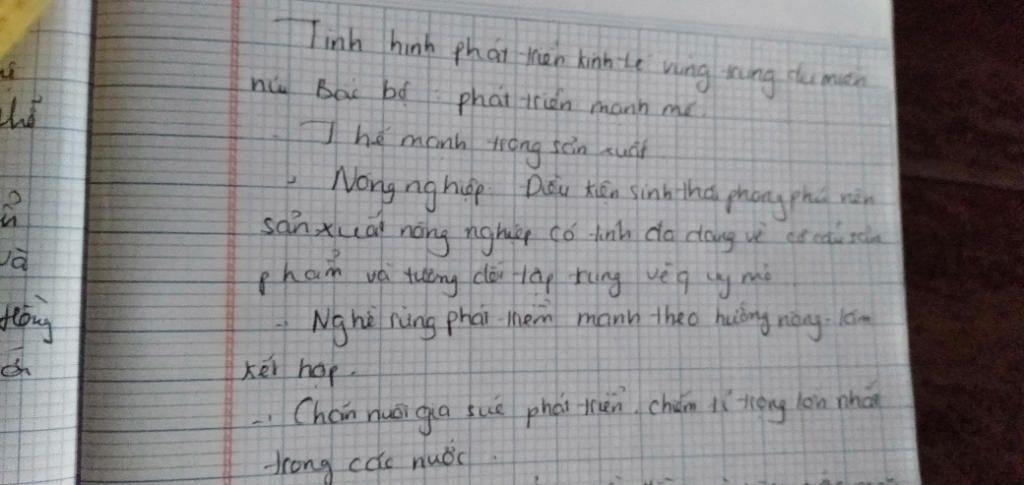 Tình hình phát triển kinh tế vùng trung du miền
núi Bắc bộ : phát triển mạnh mẽ.
- Thế mạnh trong sản xuất
, Nông nghiệp. Điều kiện sinh thái phong phú nên
sản xuất nông nghiệp có tính đa dạng về cơ cấu sản
phẩm và tương đối tập trung về quy mô
- Nghề rừng phát triển mạnh theo hướng nông - lâm
kết hợp.
- Chăn nuôi gia súc phát triển, chiếm tỉ trọng lớn nhất
trong các nước.
thể
và